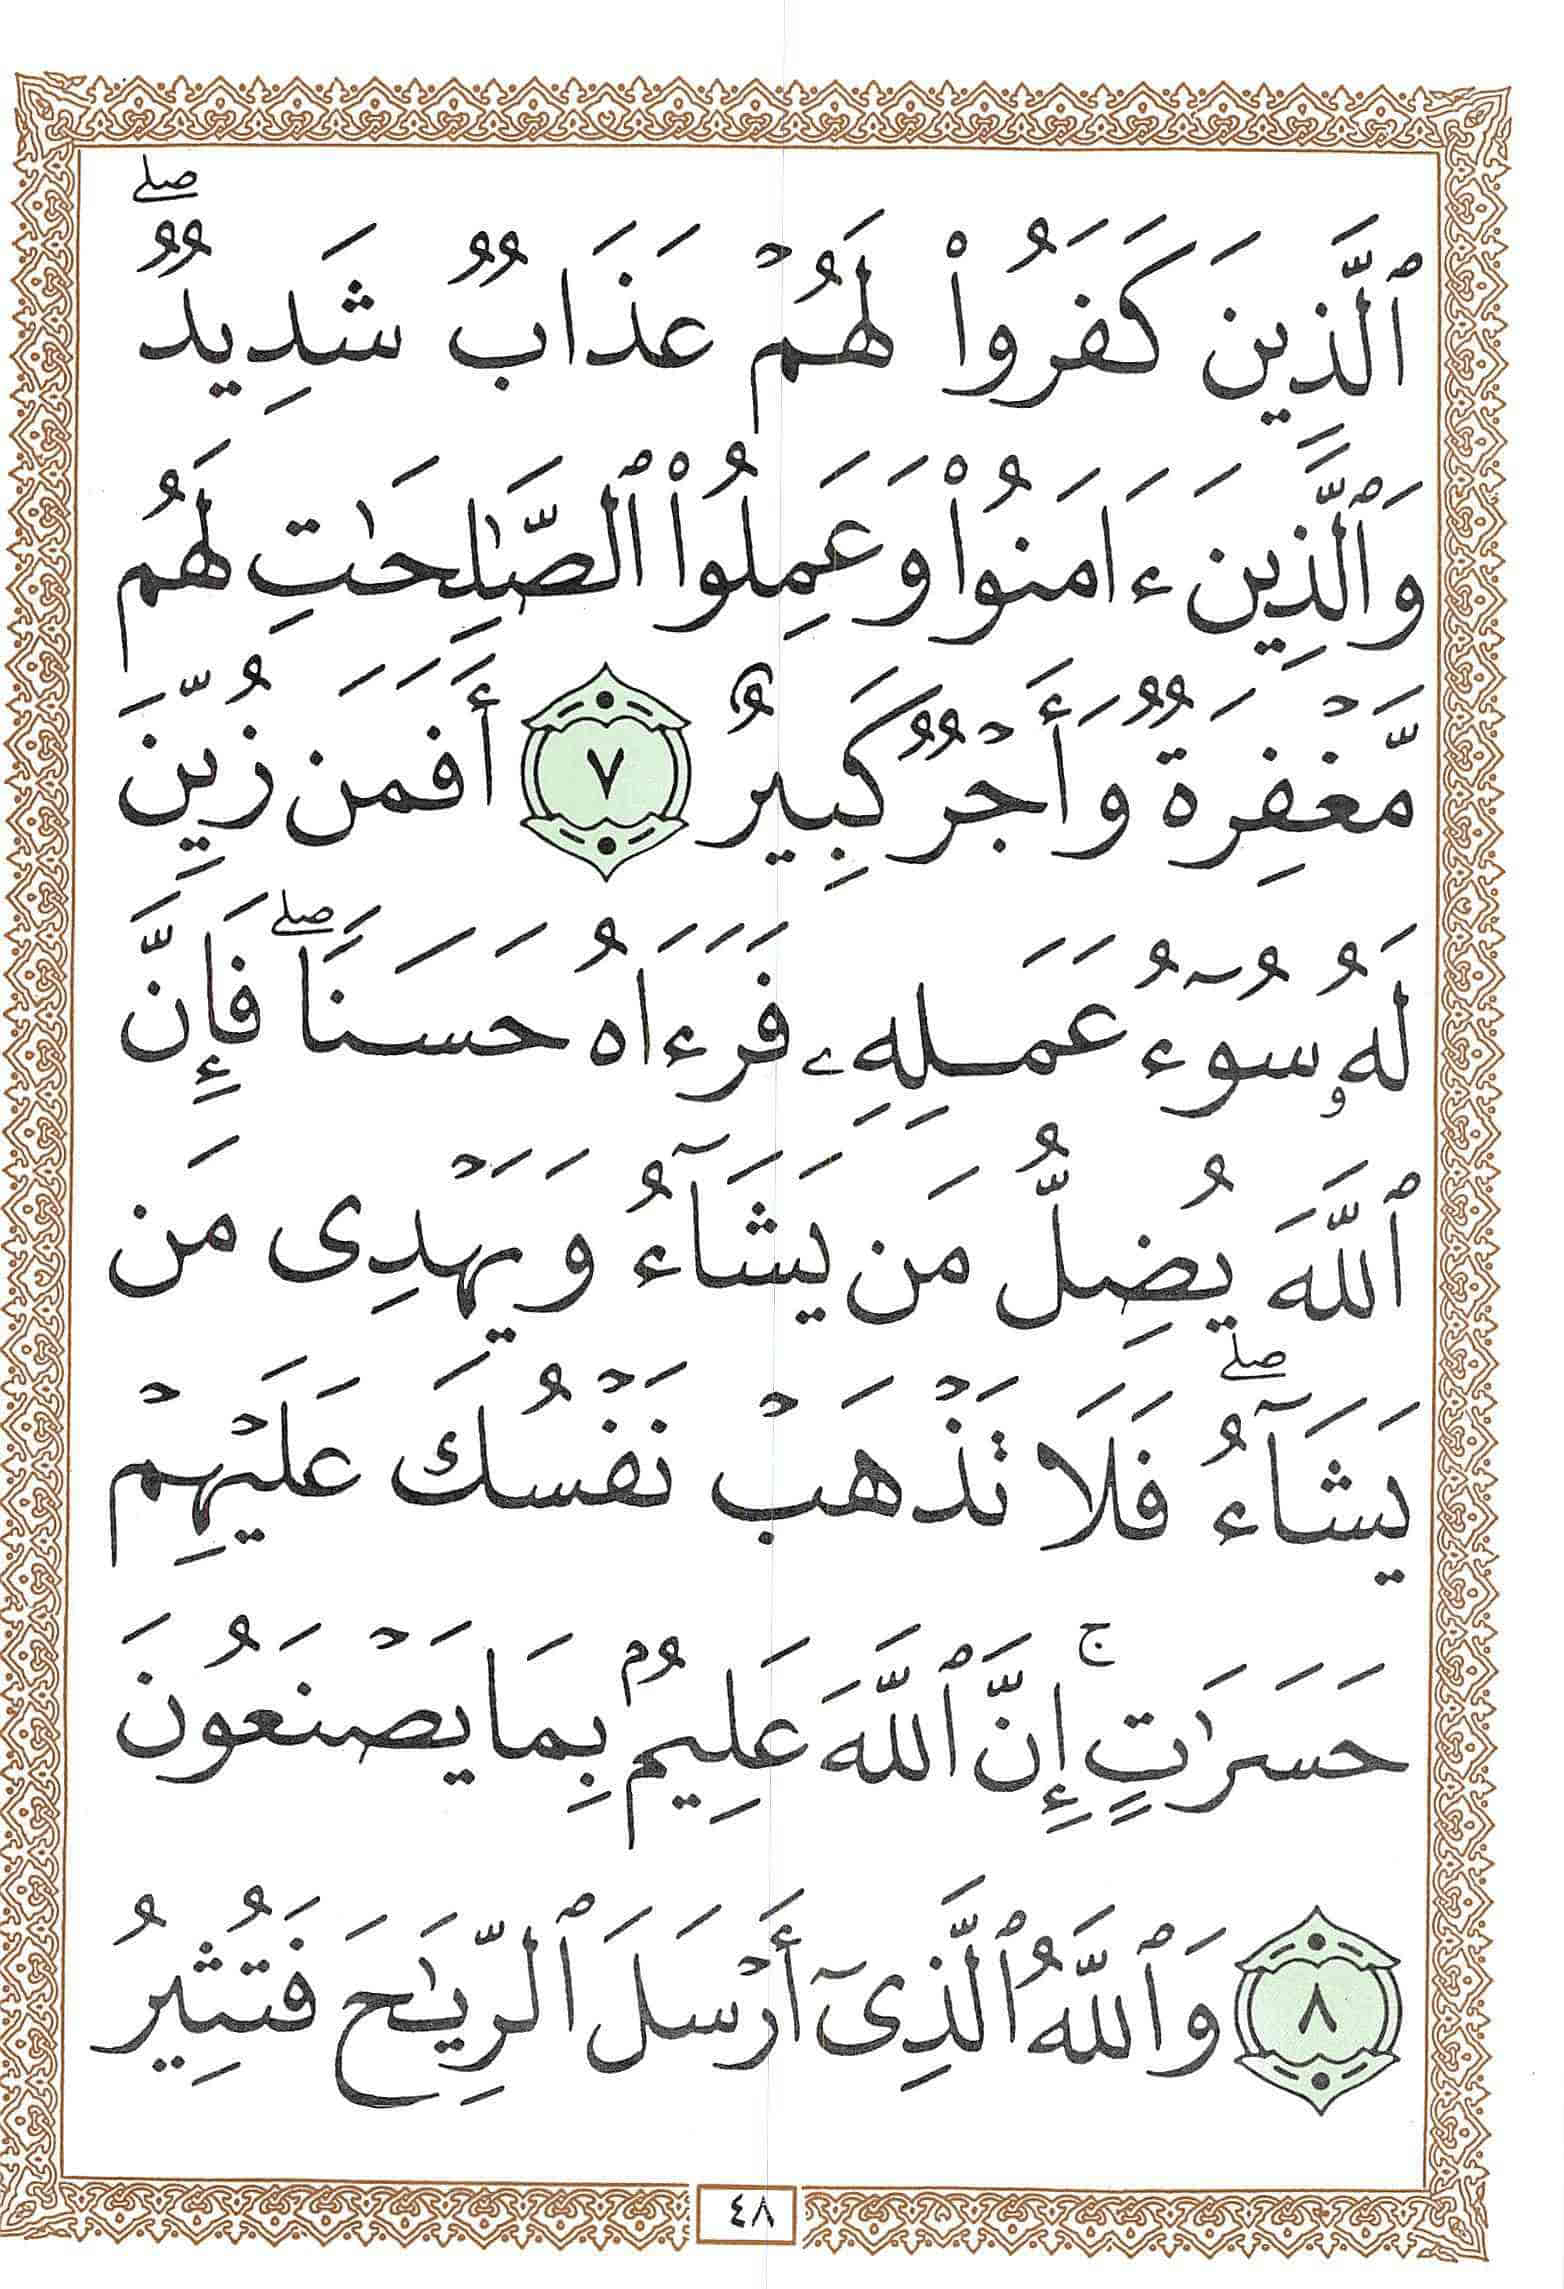 ٱلَّذِينَ كَفَرُوا۟ لَهُمْ عَذَابٌ شَدِيدٌ ۖ
وَٱلَّذِينَ ءَامَنُوا۟ وَعَمِلُوا۟ ٱلصَّـٰلِحَـٰتِ لَهُم
مَّغْفِرَةٌ وَأَجْرٌ كَبِيرٌ ٧ أَفَمَن زُيِّنَ
لَهُۥ سُوٓءُ عَمَلِهِۦ فَرَءَاهُ حَسَنًا ۖ فَإِنَّ
ٱللَّهَ يُضِلُّ مَن يَشَآءُ وَيَهْدِى مَن
يَشَآءُ ۖ فَلَا تَذْهَبْ نَفْسُكَ عَلَيْهِمْ
حَسَرَٰتٍ ۚ إِنَّ ٱللَّهَ عَلِيمٌۢ بِمَا يَصْنَعُونَ
٨ وَٱللَّهُ ٱلَّذِىٓ أَرْسَلَ ٱلرِّيَـٰحَ فَتُثِيرُ
٤٨